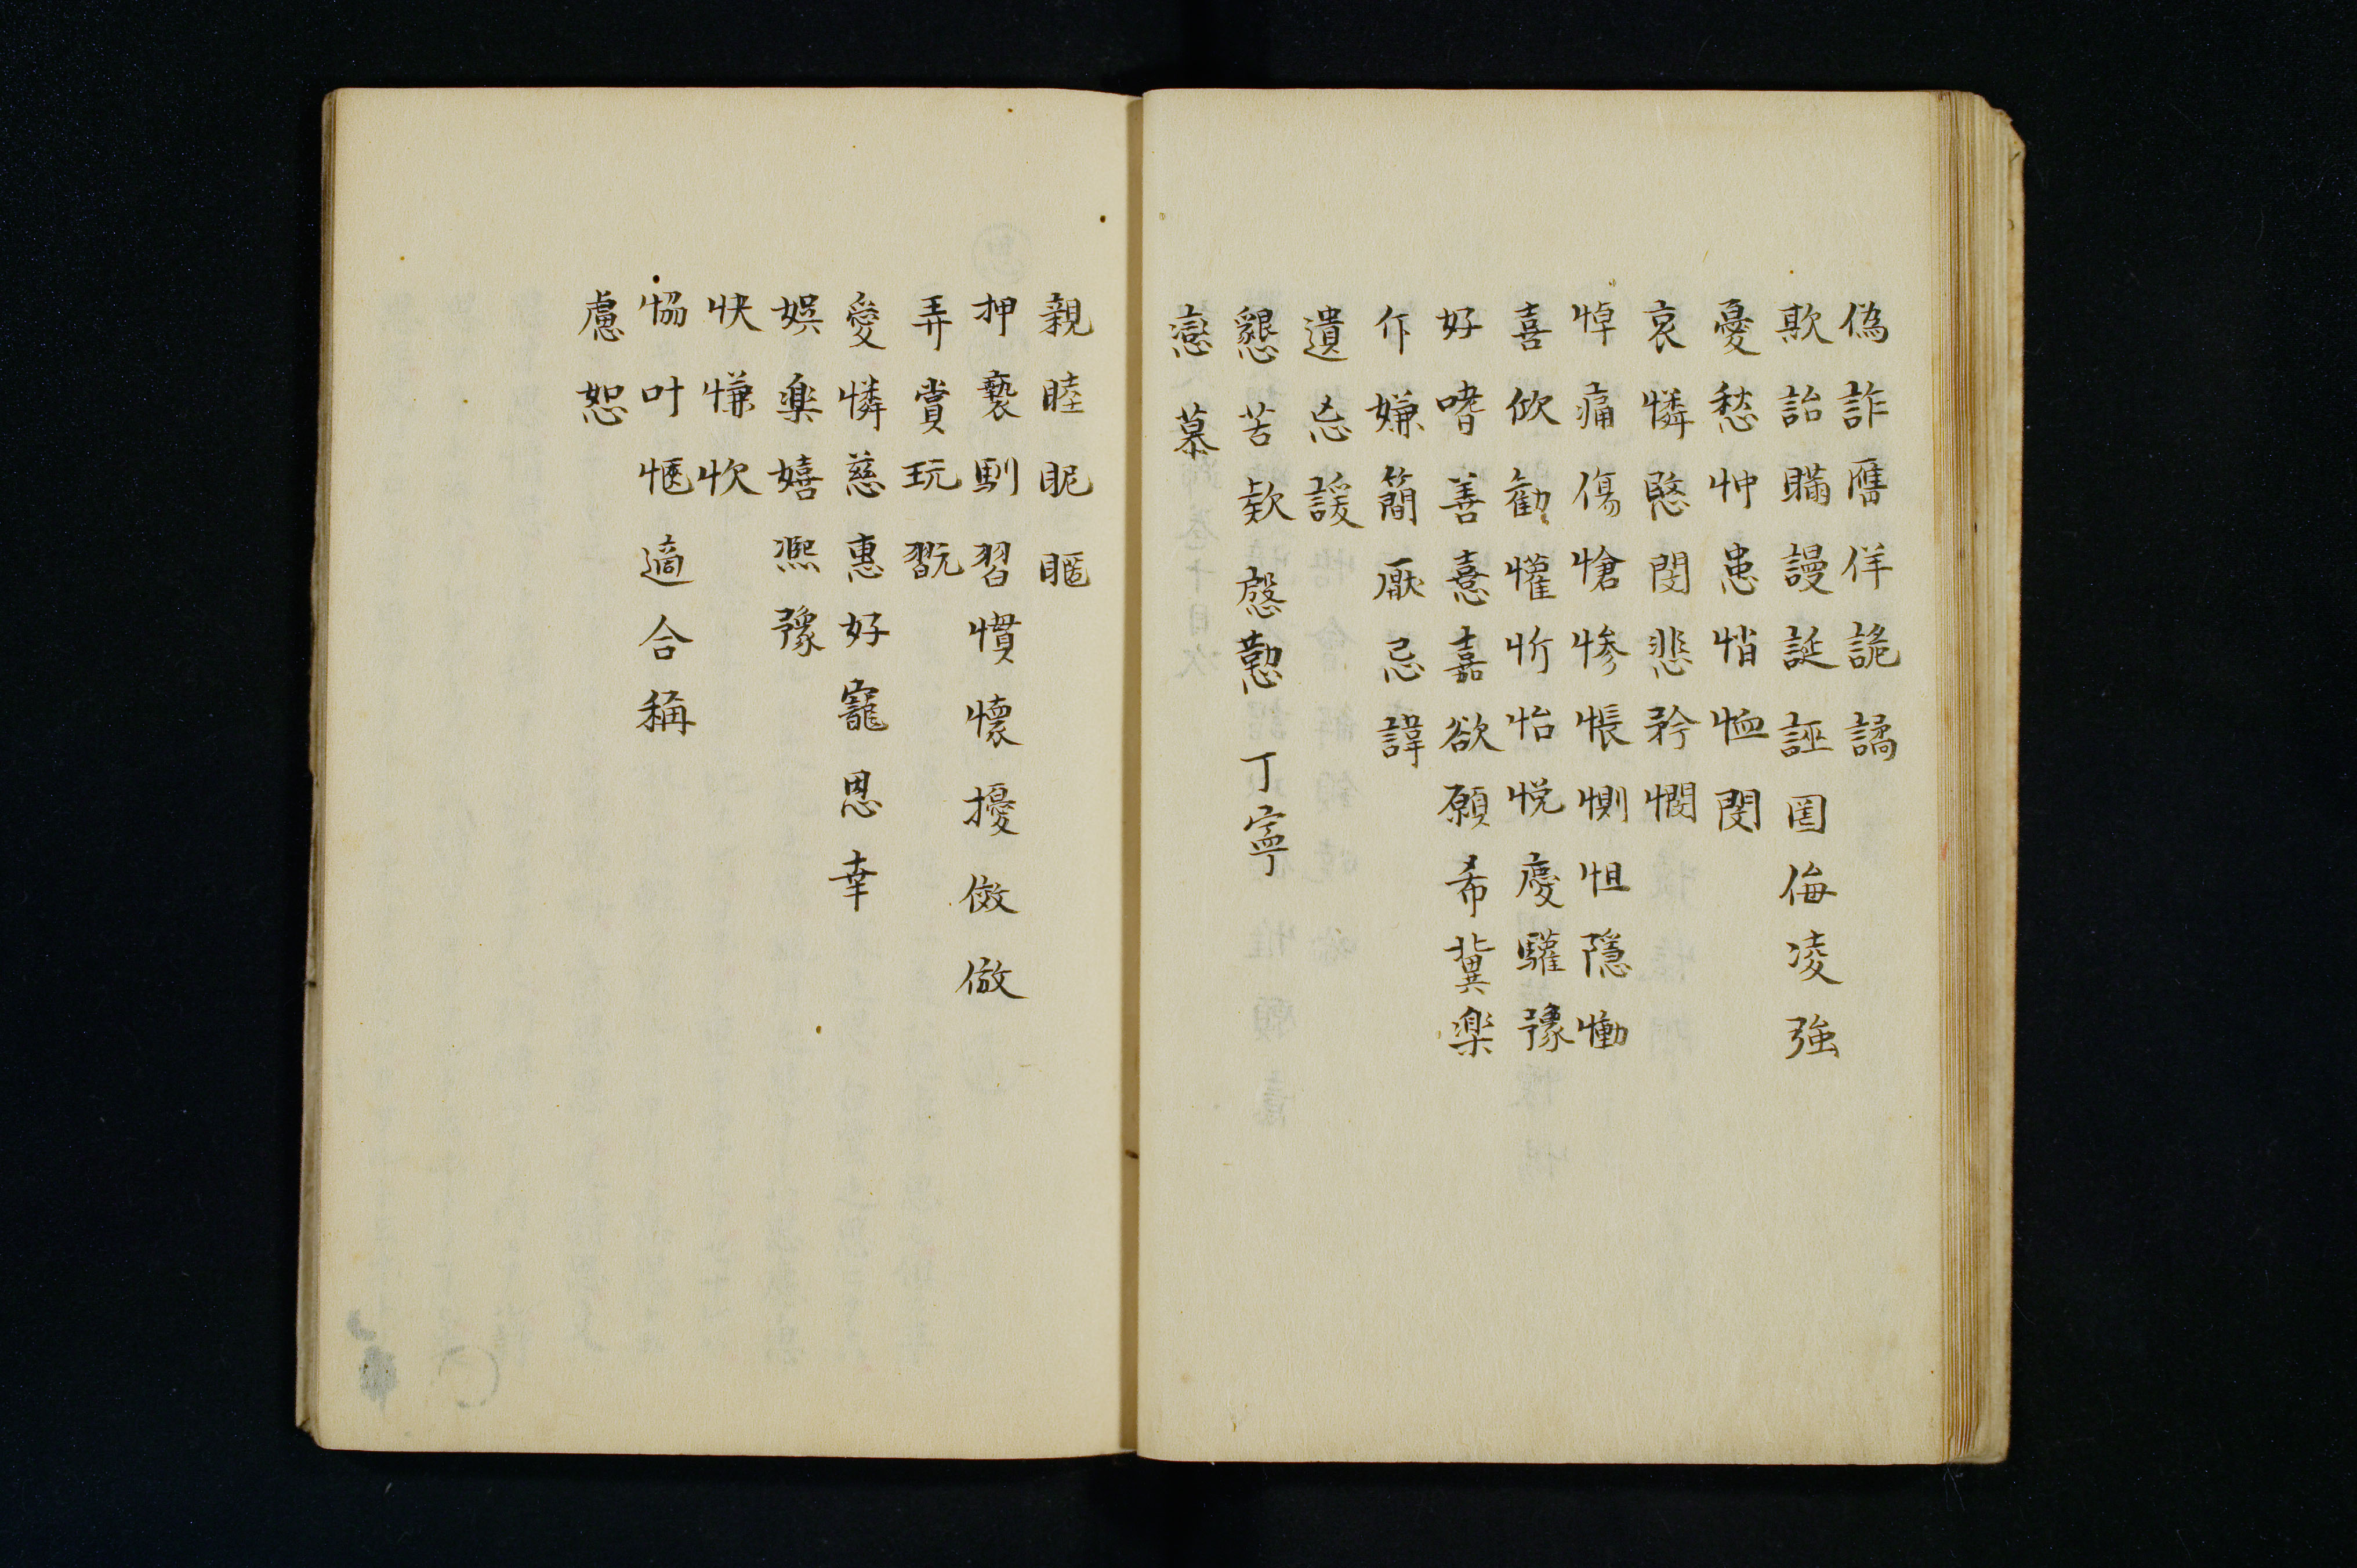 偽詐贋佯詭譎
欺詒瞞謾誕誣罔侮凌強
憂愁忡患悄恤閔
哀憐愍閔悲矜憫
悼痛傷愴惨悵惻怛隠慟
喜欣勧懽忻怡悦慶驩豫
好嗜善憙嘉欲願希冀楽
作嫌簡厭忌諱
遺忘諼
懇苦欵慇懃丁寧
恋慕
親睦昵暱
狎褻馴習慣懷擾傚倣
弄賞玩翫
愛憐慈惠好寵恩幸
娯楽嬉凞豫
快慊忺
恊叶愜適合稱
慮恕